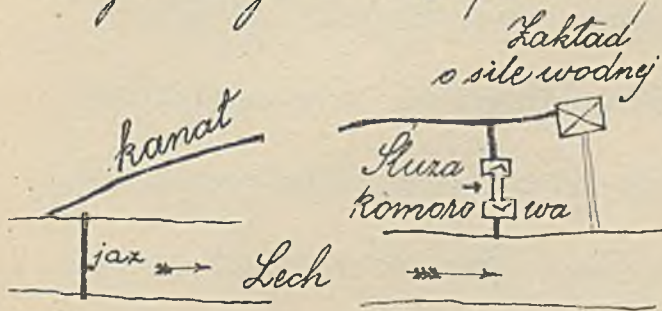 Zakład
o sile wodnej
kanał
Śluza
komorowa
jaz
Lech